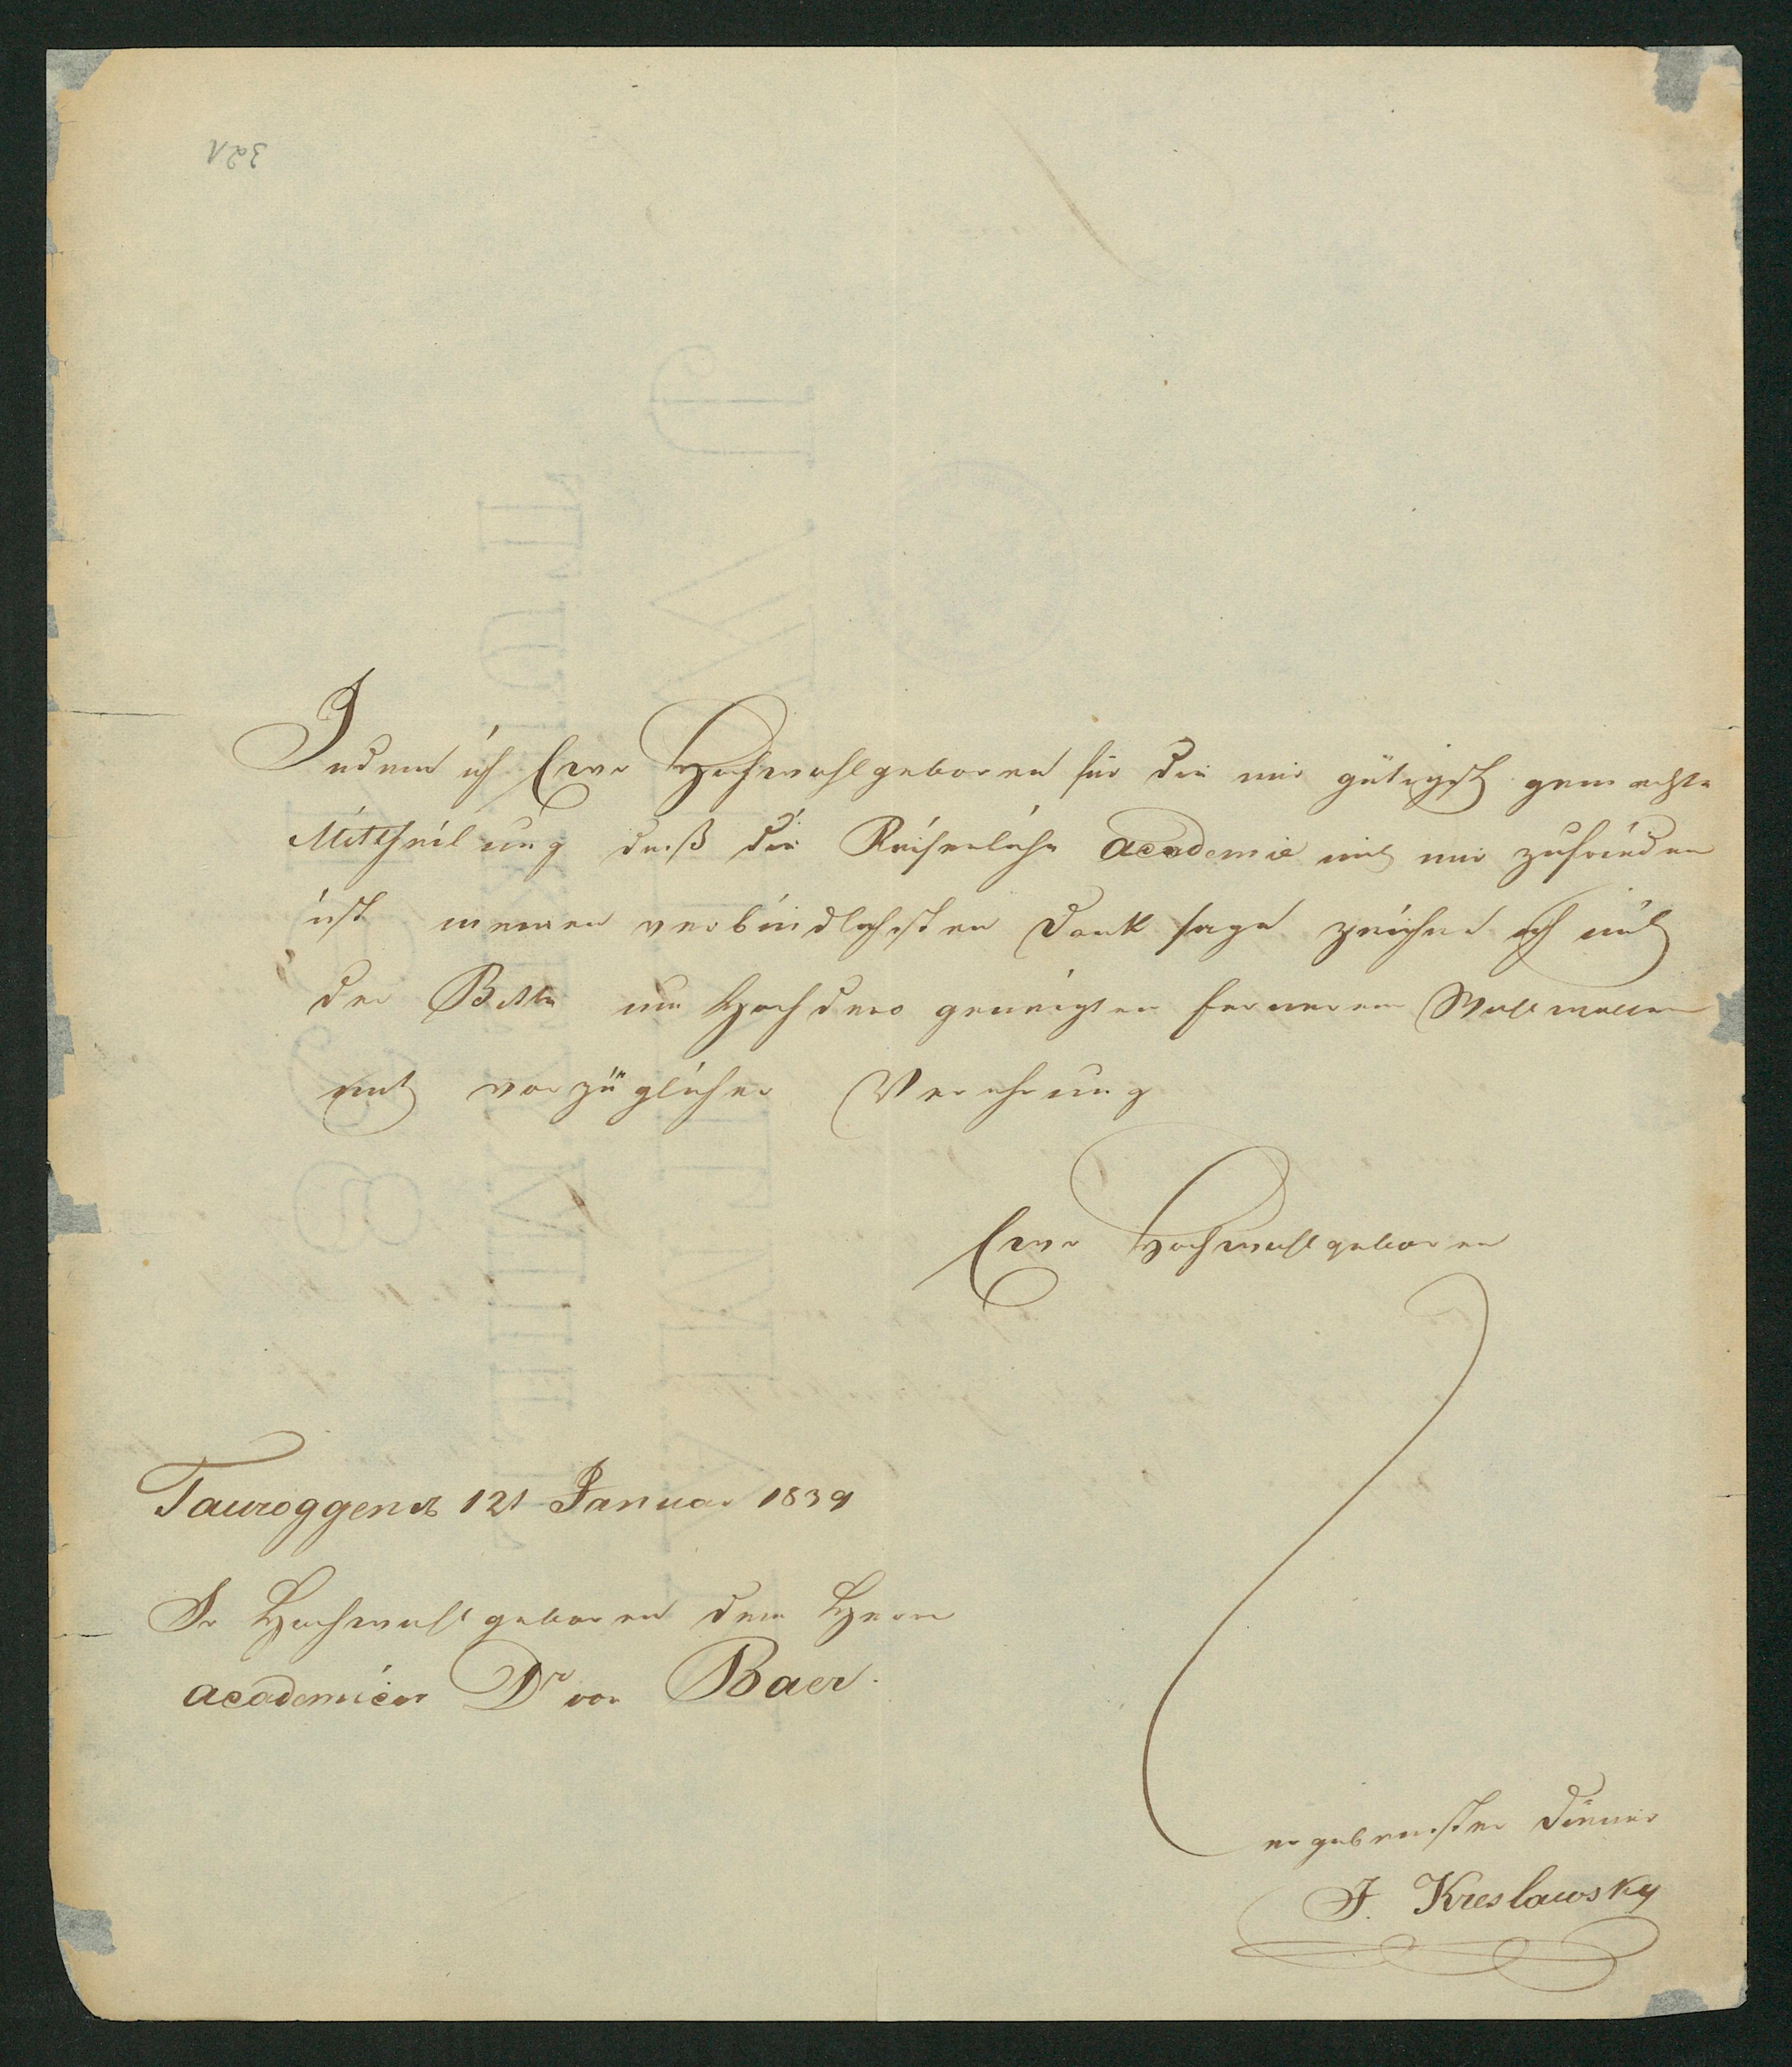 321
Indem ich Ewr Hochwohlgeboren für die mir gütigst gemachte
Mittheilung daß die Kaiserliche Academie mit mir zufrieden
ist meinen verbindlichsten Dank sage zeichne ich mit
der Bitte um Hochdero geneigten ferneren Wohlwollen
mit vorzüglicher Verehrung
Ewr Hochwohlgeboren
Tauroggen d 121 Januar 1839
Sr Hochwohlgeboren dem Herrn
Academicer Dr von Baer.
ergebenster Diener
J. Kreslawsky